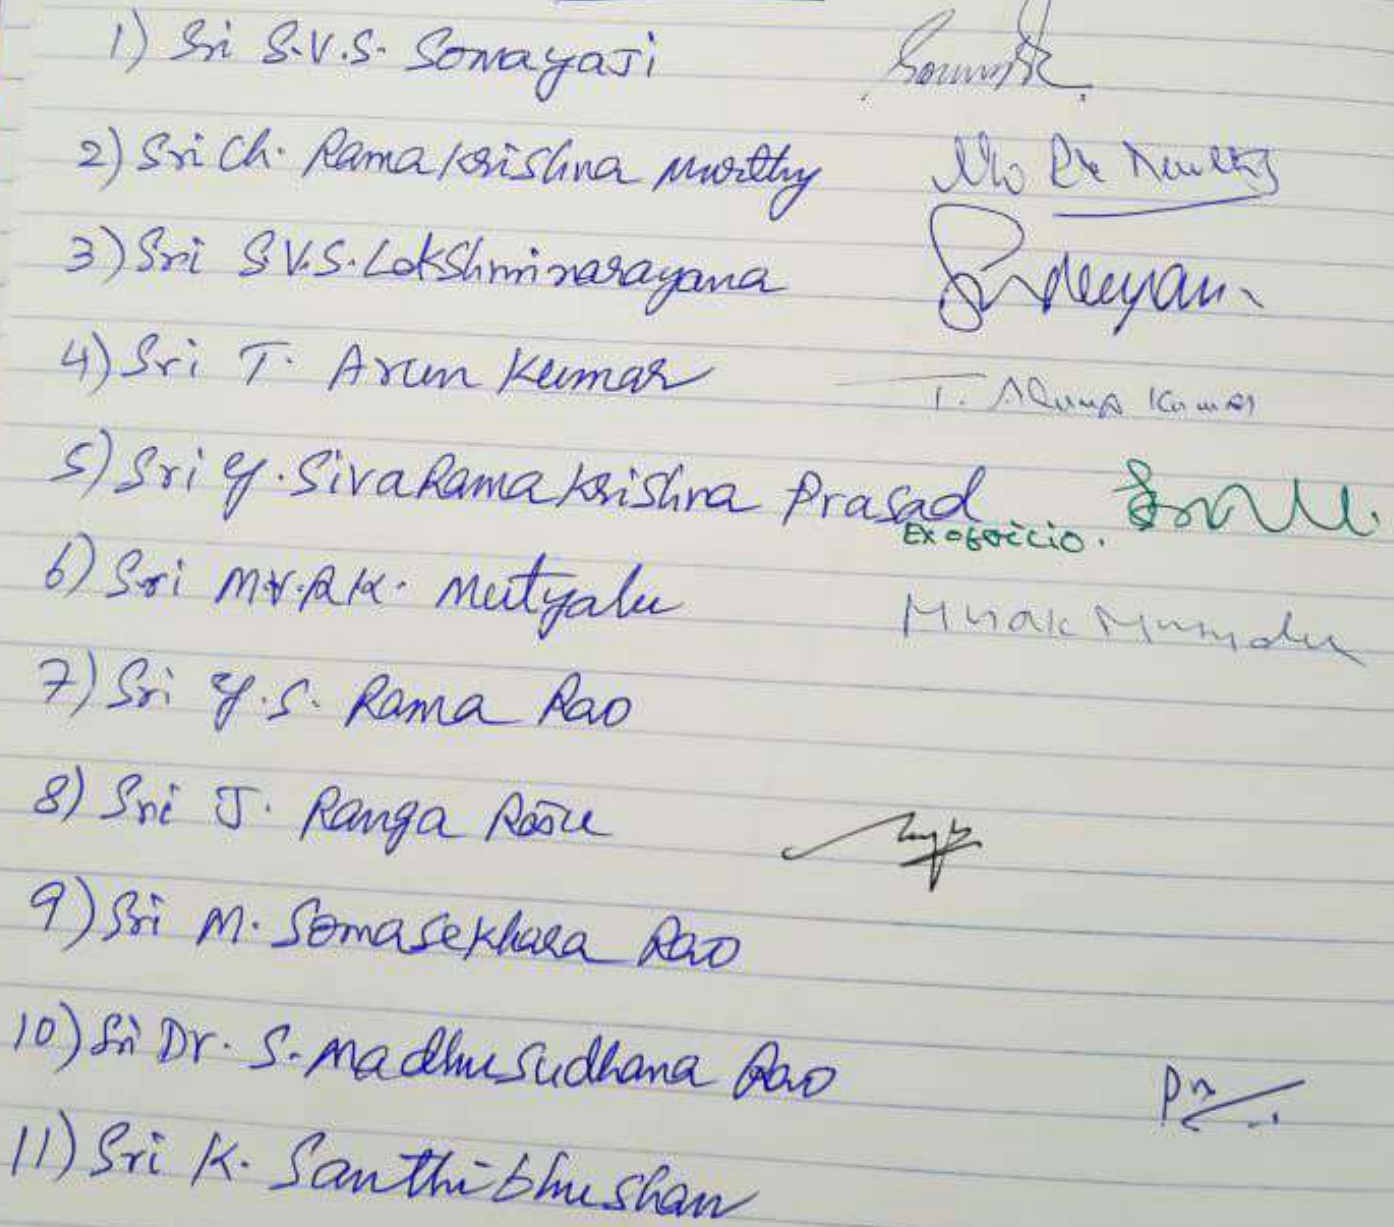 1) Sri S.V.S. Somayaji
2) Sri Ch. Rama Krishna Murthy
3) Sri S.V.S. Lakshminarayana
4) Sri T. Arun Kumar T. Aruna Kumar
5) Sri Y. Siva Rama Krishna Prasad
Ex officio.
6) Sri M.V.R.K. Mutyalu
7) Sri Y.S. Rama Rao
8) Sri J. Ranga Raju
9) Sri M. Somasekhara Rao
10) Sri Dr. S. Madhusudhana Rao
11) Sri K. Santhibhushan